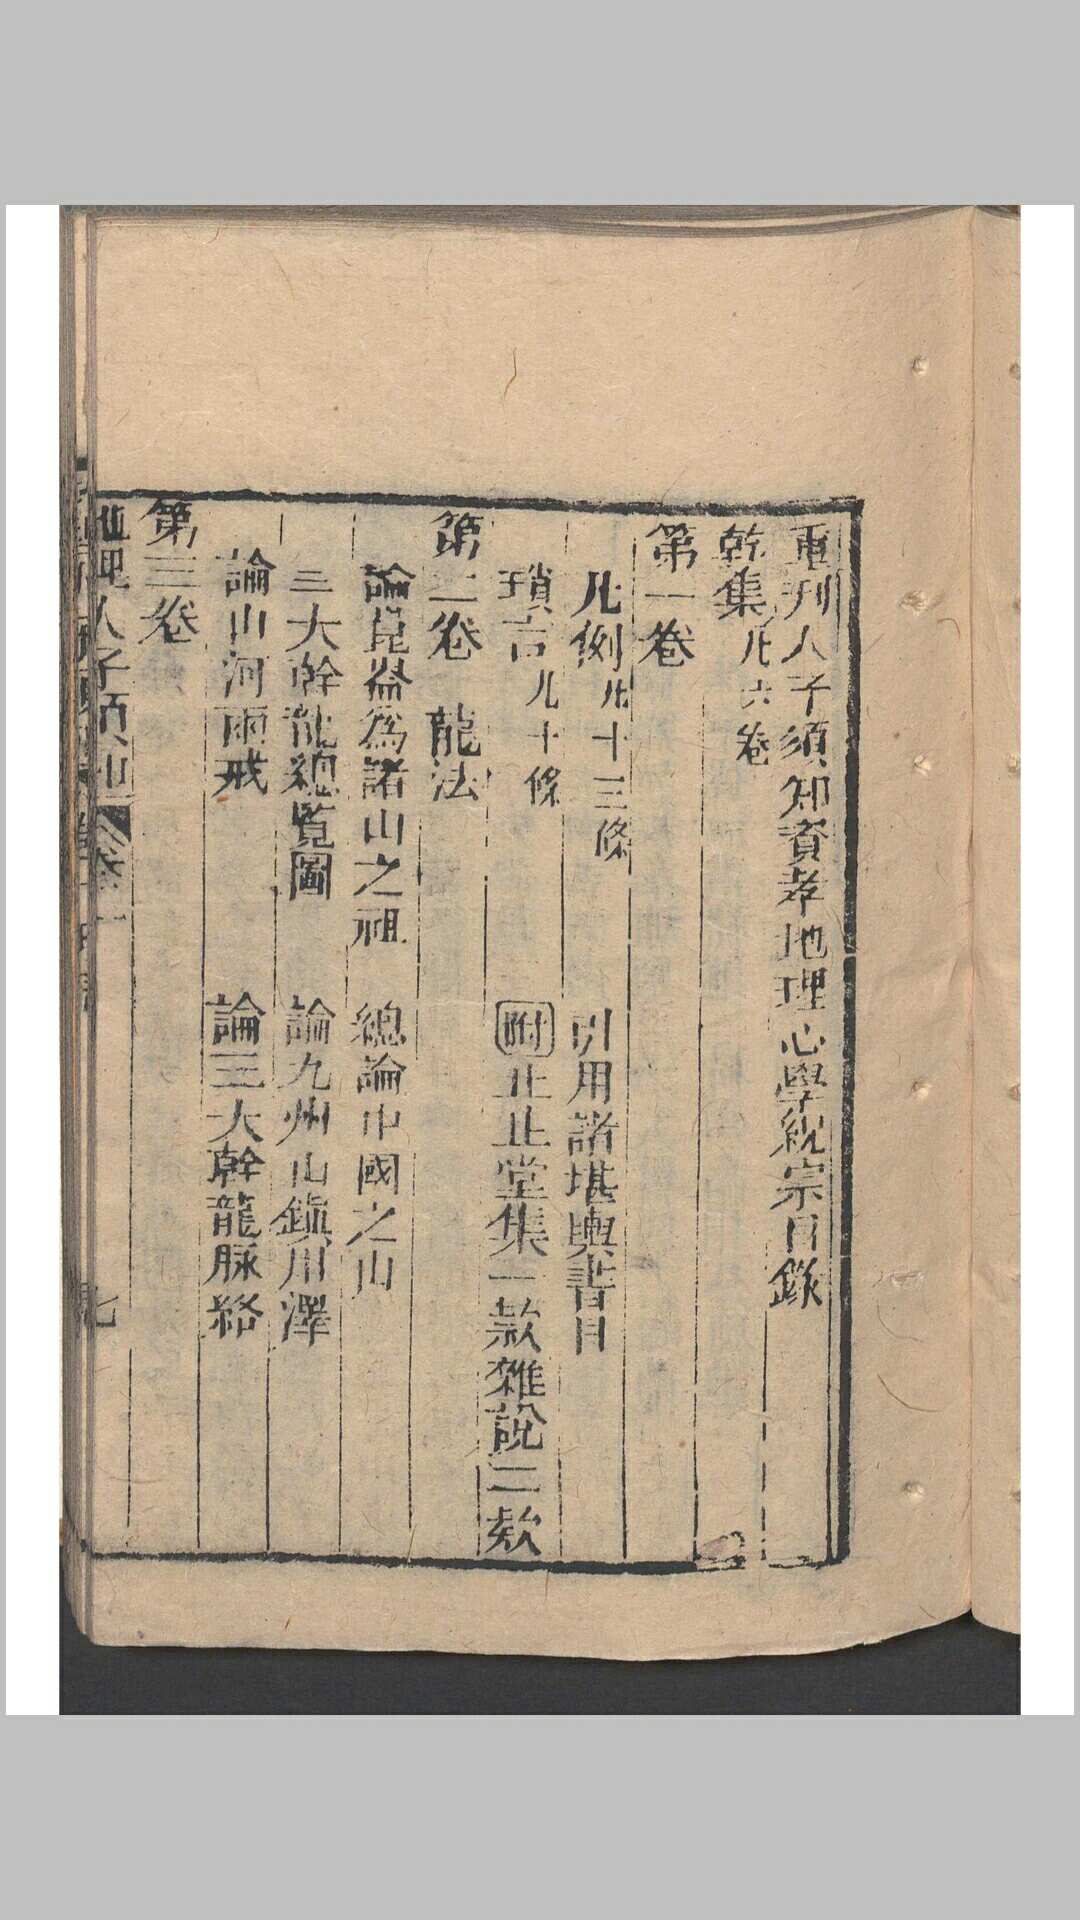 重刋人子須知資孝地理心學統宗目錄
乾集凡六卷
第一卷
凡例凡十三條 引用諸堪輿書目
瑣言凡十條 附止止堂集一款雜說二款
第二卷 龍法
論崑崙為諸山之祖 總論中國之山
三大幹龍總覧圖 論九州山鎮川澤
論山河兩戒 論三大幹龍脉絡
第三卷
地理人子須知 卷一 七